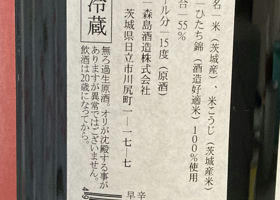 名 米(茨城産)、米こうじ(茨城産米)
ひたち錦(酒造好適米)100%使用
合 55%
ル分 15度(原酒)
森島酒造株式会社
茨城県日立市川尻町一ー一七ー七
冷蔵
無ろ過生原酒。オリが沈殿する事が
ありますが異常ではございません。
飲酒は20歳になってから。
辛
早